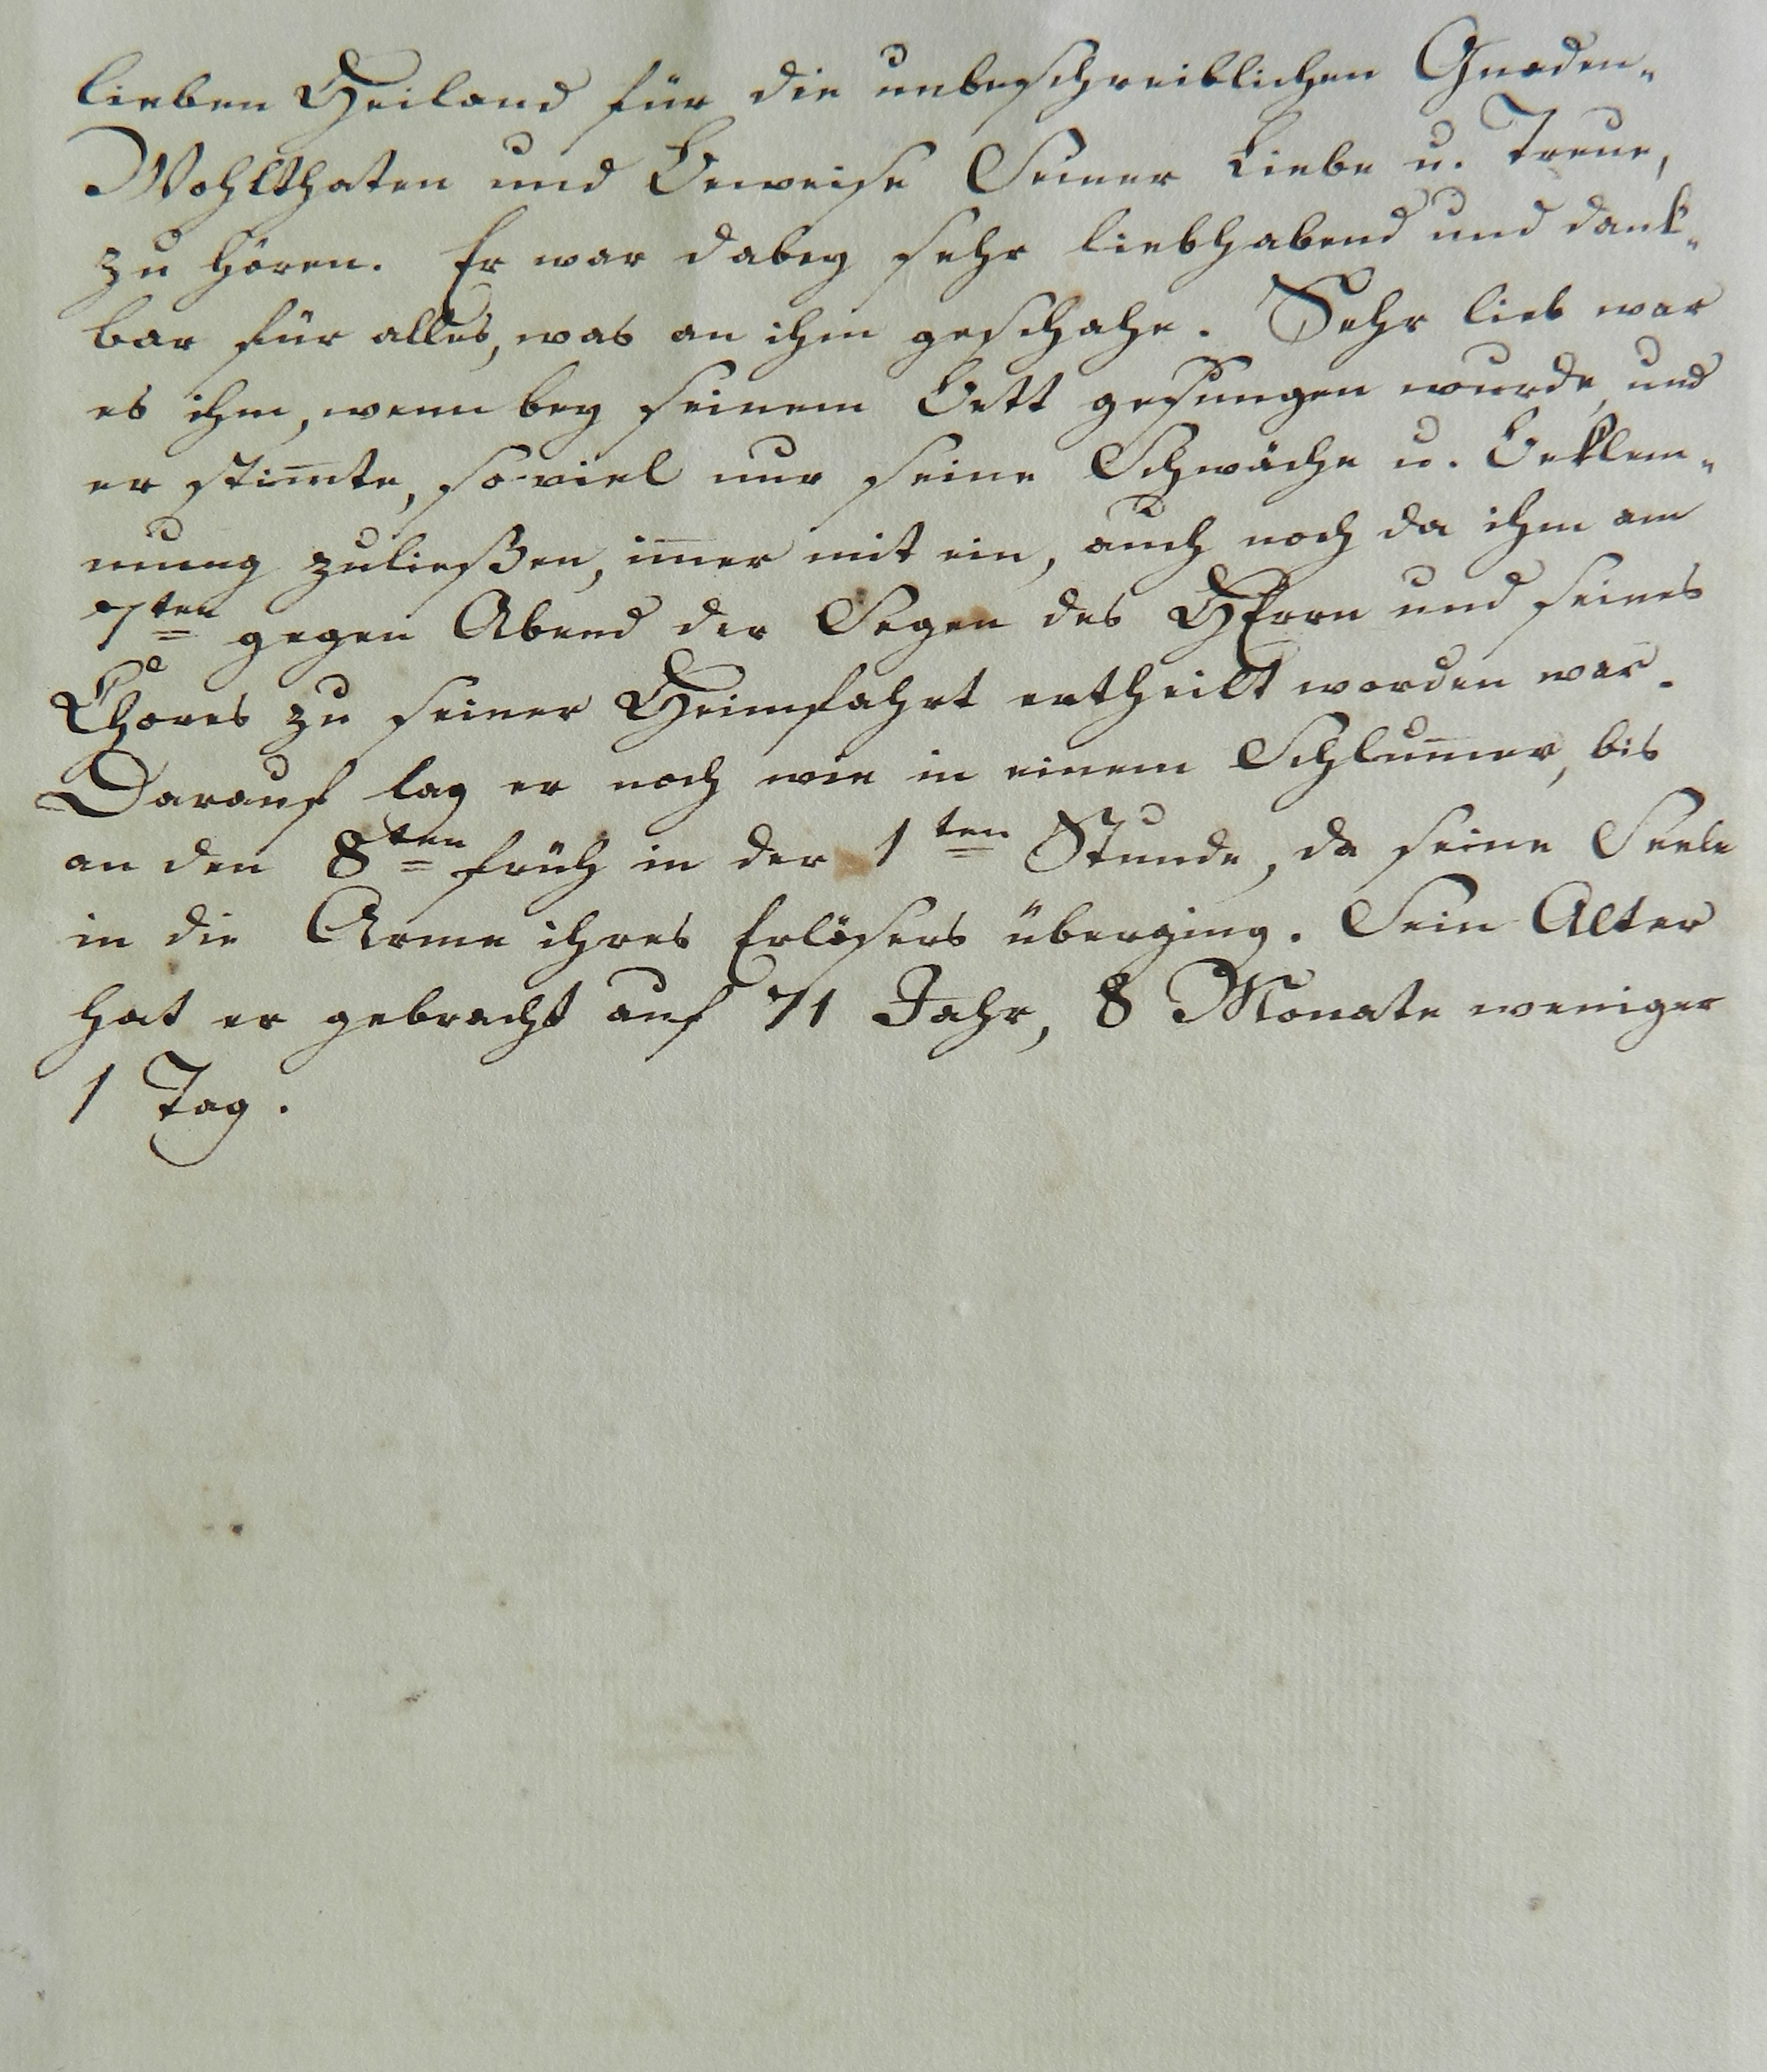 lieben Heiland für die unbeschreiblichen Gnaden-
Wohlthaten und Beweise Seiner Liebe u. Treue,
zu hören. Er war dabey sehr liebhabend und dank-
bar für alles, was an ihm geschahe. Sehr lieb war
es ihm, wenn bey seinem Bett gesungen wurde, und
er stim̄te, so viel nur seine Schwäche u. Beklem-
mung zuließen, im̄er mit ein, auch noch da ihm am
7ten gegen Abend der Segen des HErrn und seines
Chores zu seiner Heimfahrt ertheilt worden war.
Darauf lag er noch wie in einem Schlum̄er, bis
an den 8ten früh in der 1ten Stunde, da seine Seele
in die Arme ihres Erlösers überging. Sein Alter
hat er gebracht auf 71 Jahr, 8 Monate weniger
1 Tag.